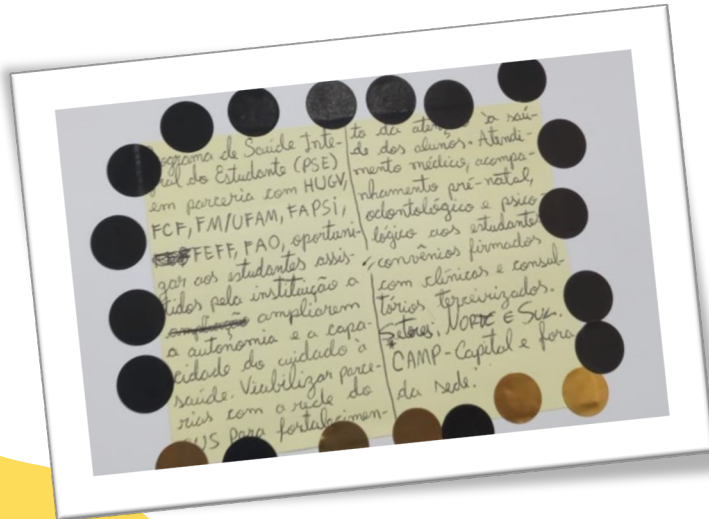 ograma de Saúde Inte-
ral do Estudante (PSE)
em parceria com HUGV,
FCF, FM/UFAM, FAPSI,
FEFF, FAO, oportuni-
zar aos estudantes assis-
tidos pela instituição a
ampliarem
a autonomia e a capa-
cidade do cuidado à
saúde. Viabilizar parce-
rias com a rede do
SUS para fortalecimen-
to da saú-
de dos alunos. Atendi-
mento médico, acompa-
nhamento pré-natal,
odontológico e psico-
lógico aos estudantes
convênios firmados
com clínicas e consul-
tórios terceirizados.
Setores. NORTE E SUL.
* CAMP-Capital e fora
da sede.